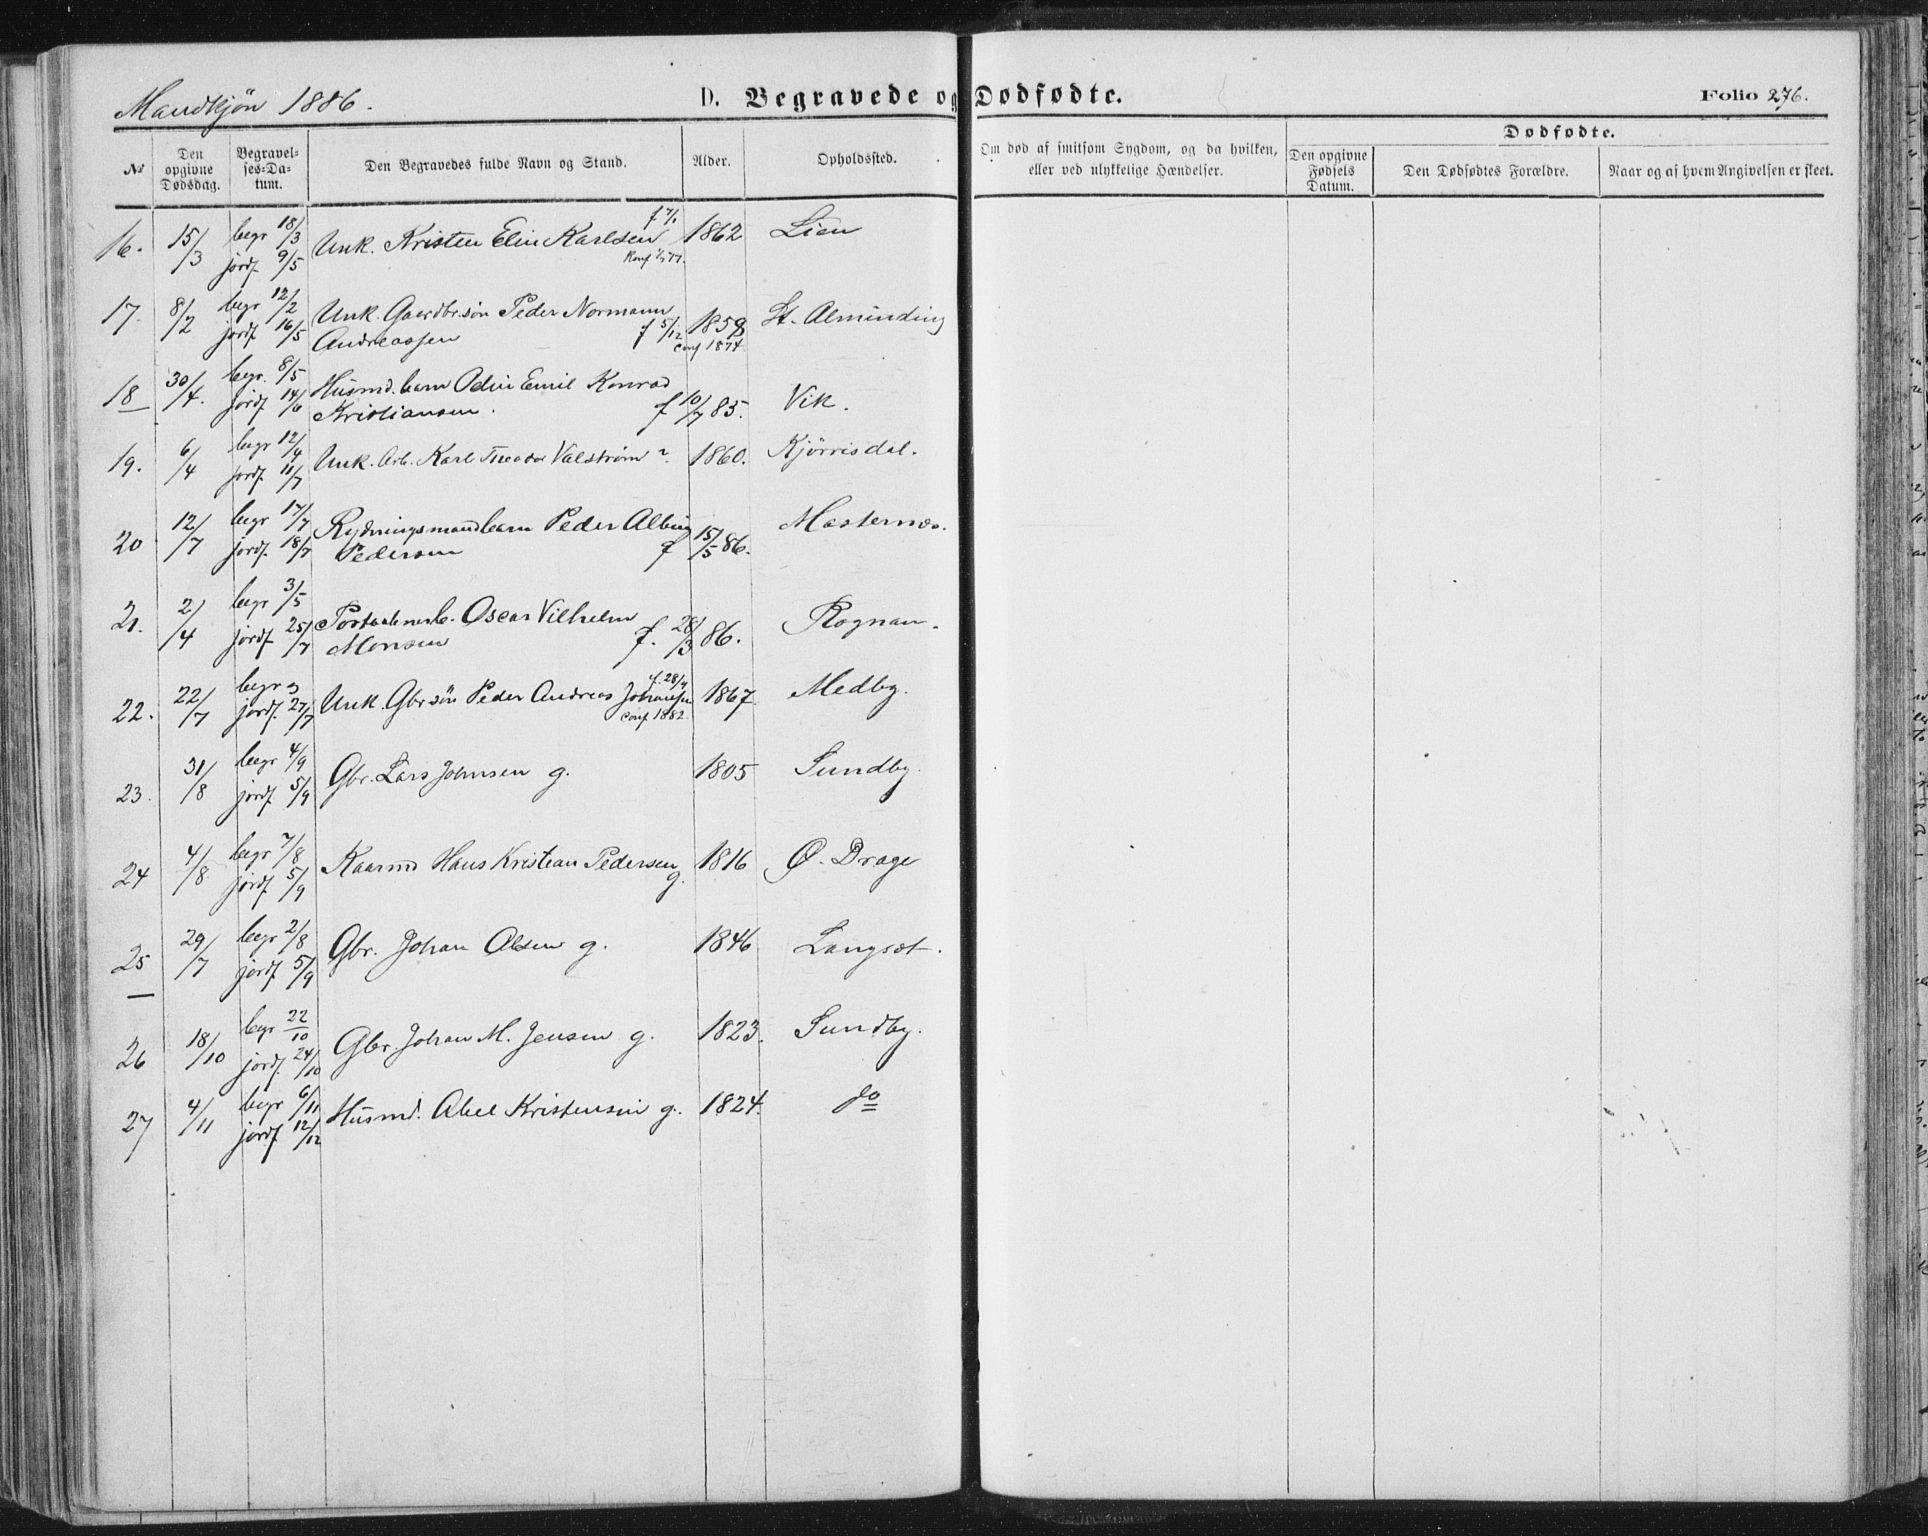 Mandkjön 1886.
D. Begravede og Dødfødte.
Folio 276.
№
Den opgivne Dødsdag.
Begravel=ses=Da=tum.
Den Begravedes fulde Navn og Stand.
Alder.
Opholdssted.
Om død af smitsom Sygdom, og da hvilken, eller ved ulykkelige Hændelser.
Dødfødte.
Den opgivne Fødsels Datum.
Den Dødfødtes Forældre.
Naar og af hvem Angivelsen er skeet.
16. 15/3 begr 18/3 jordf. 9/5 Unk. Kristen Elin Karlsen 1862 Lien
17. 8/2 begr 12/2 jordf 16/5 Unk. Gaardbr.søn Peder Normann
Andreassen f 5/12 1859 conf 1874 St. Alminding
18 30/4. begr. 8/5 jordf 14/6 Husmd. barn Odin Emil Konrad
Kristiansen. f 10/7 85. Vik.
19. 6/4 begr 12/4 jordf. 11/7 Unk. Arb. Karl Theodor Valstrøm ? 1860. Kjörrisdal.
20 12/7 begr 17/7 jordf. 18/7 Rydningsmandbarn Peder Albin
Pedersen f 15/5 86. Mosternes.
21. 2/4 begr 3/5 jordf. 25/7 Postaabnerb. Oscar Vilhelm
Monsen f. 28/3 86. Rognan.
22. 22/7 begr jordf. 27/7 Unk. Gbr søn Peder Andreas Johansen f. 28/4 1867. conf 1882. Medby.
23. 31/8 begr 4/9 jordf 5/9 Gbr. Lars Johnsen g. 1805 Sundby.
24 4/8 begr 7/8 jordf. 5/9 Kaarmd Hans Kristian Pedersen g. 1816 Ø. Drage
25 29/7 begr 2/8 jordf 5/9 Gbr. Johan Olsen g. 1846 Langset.
26 18/10 begr 22/10 jordf. 24/10 Gbr. Johan M. Jensen g. 1823. Sundby.
27 4/11 begr 6/11 jordf. 12/12 Husmd. Abel Kristensen g. 1824. do